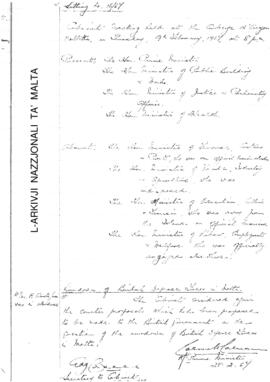 Sitting No. 10/67
Cabinet Meeting held at the Auberge d'Aragon
Valletta, on Tuesday, 14th February, 1967, at 5 p.m.
Present: The Hon. Prime Minister
The Hon. Minister of Public Building
& Works
The Hon. Minister of Justice & Parliamentary
Affairs
The Hon. Minister of Health
L-ARKIVJI NAZZJONALI TA' MALTA
Absent: The Hon. Minister of Finance, Customs
& Port
The Hon. Minister of Trade, Industry
& Agriculture who was
The Hon. Minister of Education, Culture
& Tourism who was away from
the Island on official business
The Hon. Minister of Labour, Employment
& Welfare who was officially
engaged elsewhere.
was in attendance
Rundown of British Services in Malta
The Cabinet considered
the counter proposals which had been proposed
to be made to the British Government in
of the rundown of British Services
in Malta.
Prime Minister
28.2.67
Secretary to Cabinet